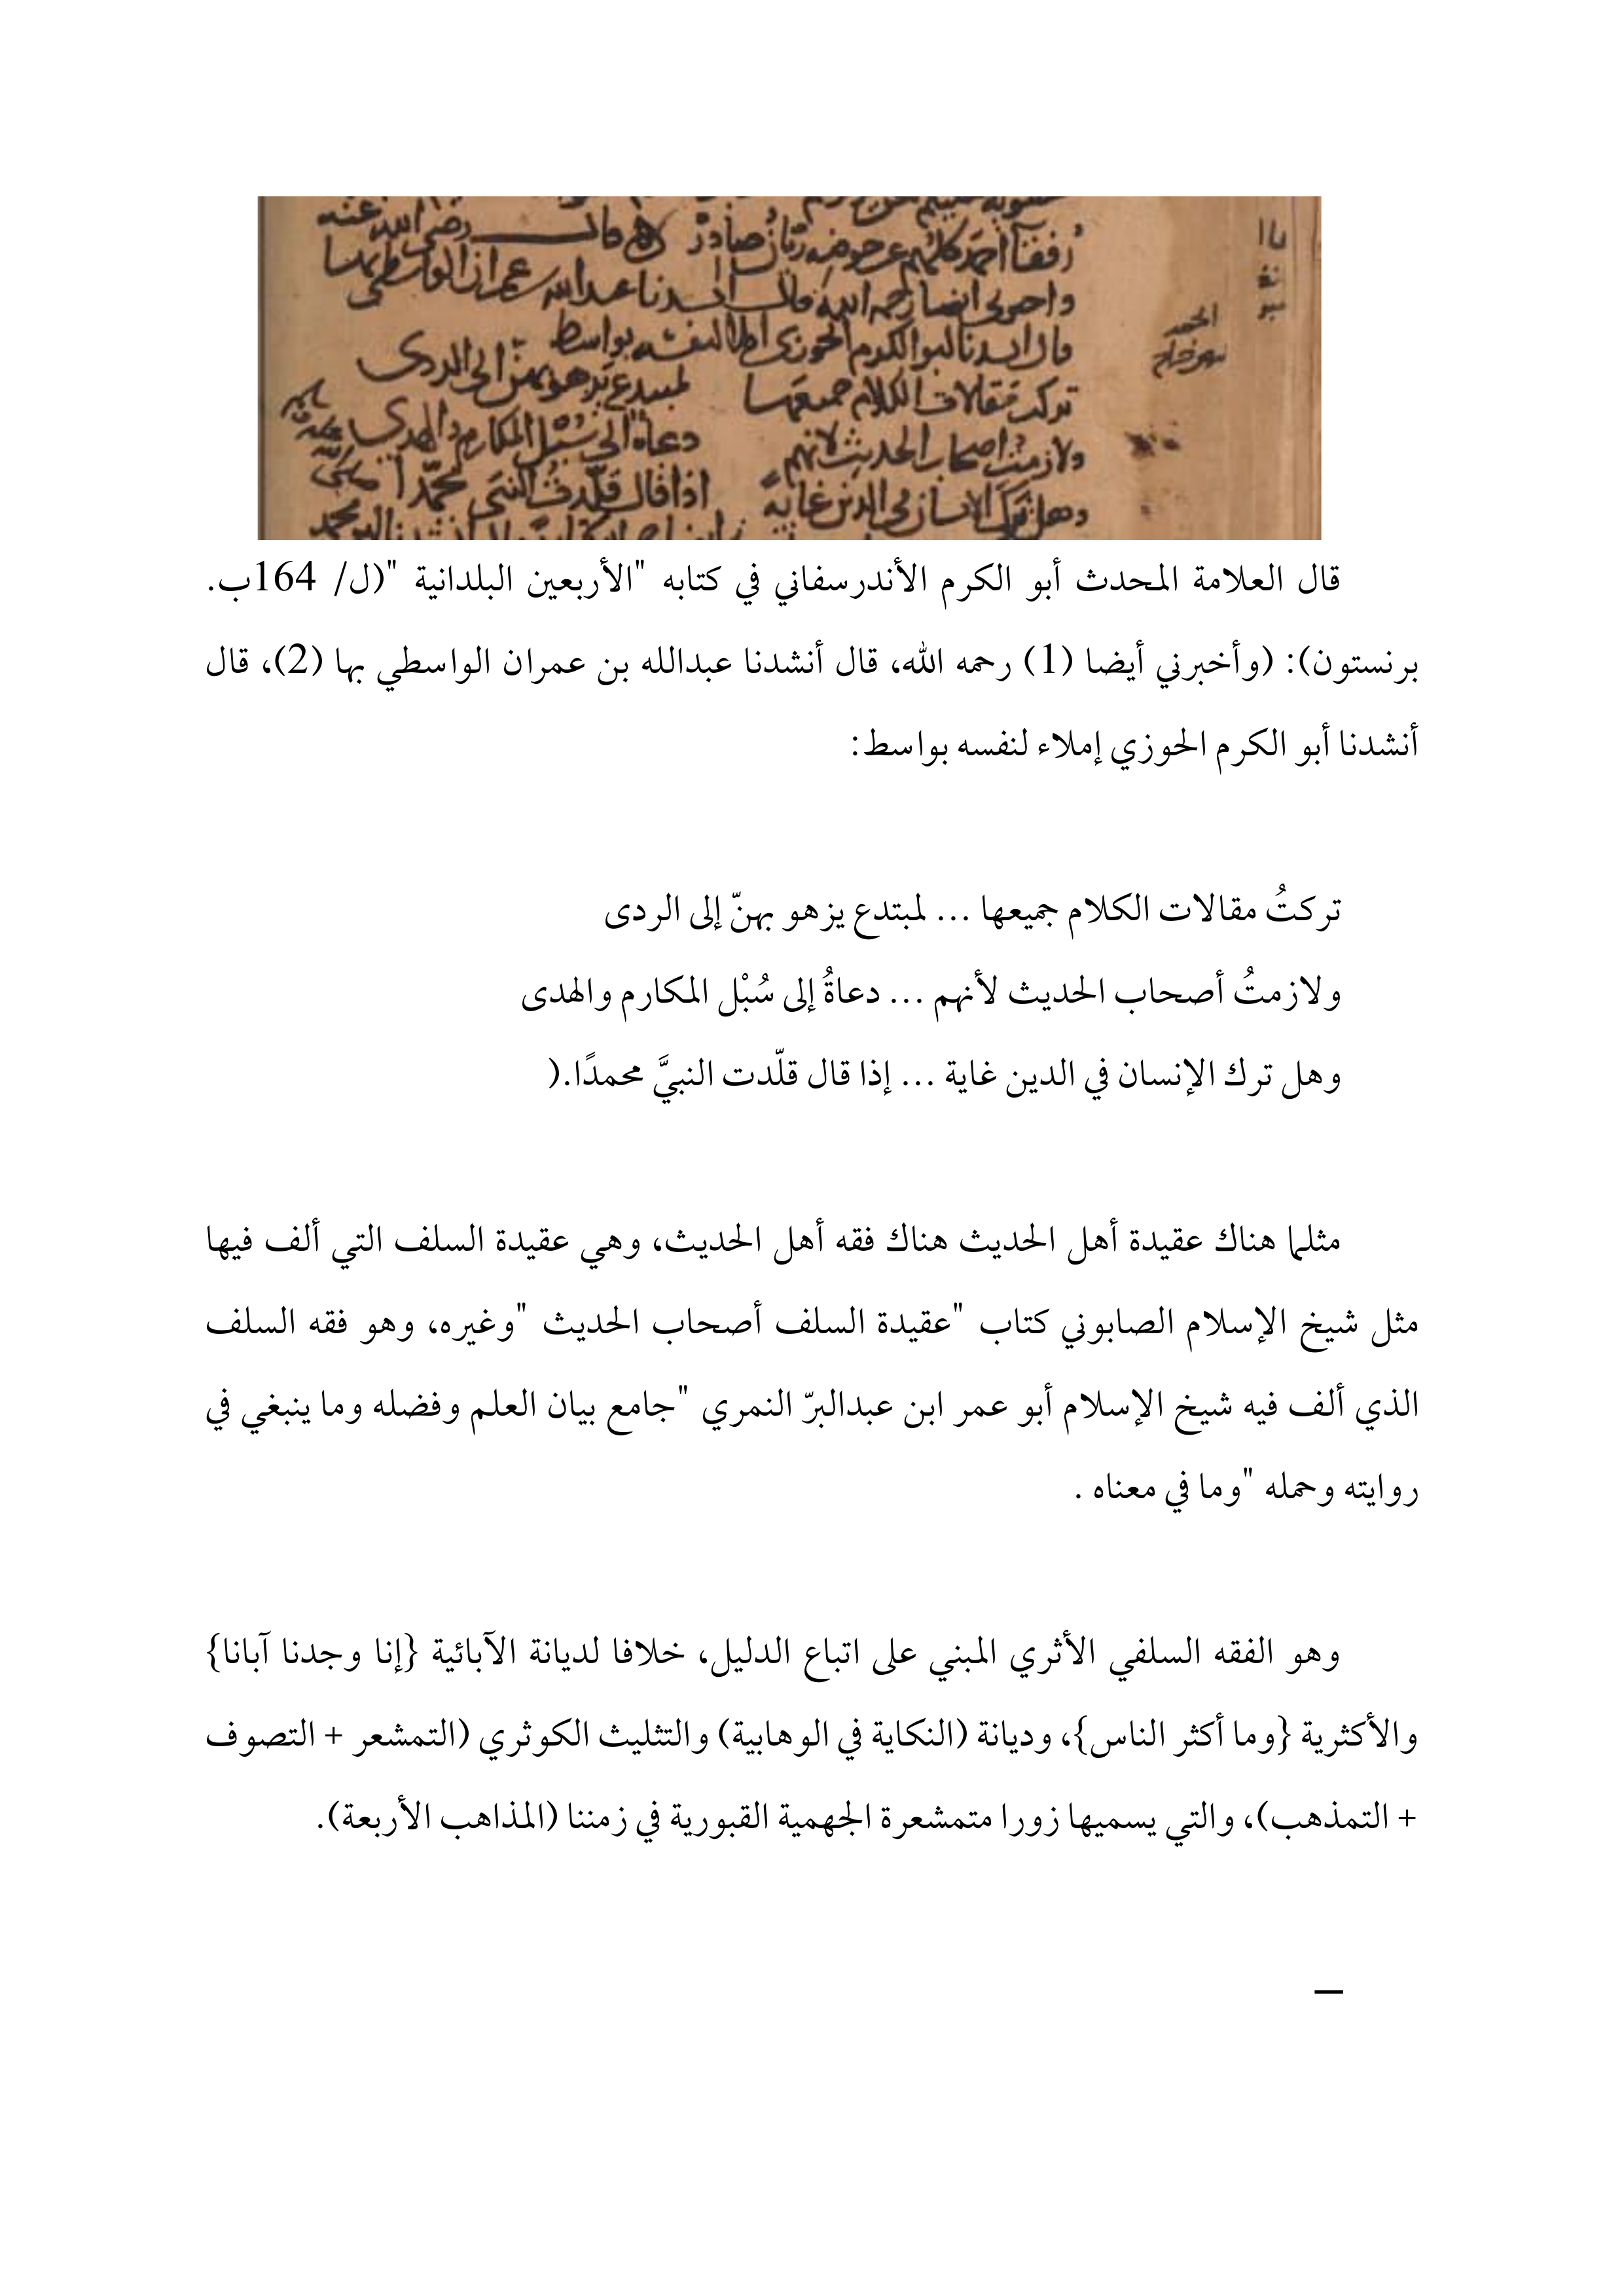 رفقنا أحمد كلهم عن حوضه ريان صادر قال رضي الله عنه
واحبرني ايضا رحمه الله قال انشدنا عبد الله بن عمران الواسطي بها
قال انشدنا ابو الكرم الحوزي املا لنفسه بواسط
تركت مقالات الكلام جميعها لمبتدع يزهو بهن الى الردى
ولازمت اصحاب الحديث لانهم دعاة الى سبل المكارم والهدى
وهل ترك الانسان في الدين غاية اذا قال قلدت النبي محمدا
قال العلامة المحدث أبو الكرم الأندرسفاني في كتابه "الأربعين البلدانية "(ل/ 164ب.
برنستون): (وأخبرني أيضا (1) رحمه الله، قال أنشدنا عبدالله بن عمران الواسطي بها (2)، قال
أنشدنا أبو الكرم الحوزي إملاء لنفسه بواسط:
تركتُ مقالات الكلام جميعها ... لمبتدع يزهو بهنّ إلى الردى
ولازمتُ أصحاب الحديث لأنهم ... دعاةُ إلى سُبْل المكارم والهدى
وهل ترك الإنسان في الدين غاية ... إذا قال قلّدت النبيَّ محمدًا.(
مثلما هناك عقيدة أهل الحديث هناك فقه أهل الحديث، وهي عقيدة السلف التي ألف فيها
مثل شيخ الإسلام الصابوني كتاب "عقيدة السلف أصحاب الحديث "وغيره، وهو فقه السلف
الذي ألف فيه شيخ الإسلام أبو عمر ابن عبدالبرّ النمري "جامع بيان العلم وفضله وما ينبغي في
روايته وحمله "وما في معناه .
وهو الفقه السلفي الأثري المبني على اتباع الدليل، خلافا لديانة الآبائية {إنا وجدنا آبانا}
والأكثرية {وما أكثر الناس}، وديانة (النكاية في الوهابية) والتثليث الكوثري (التمشعر + التصوف
+ التمذهب)، والتي يسميها زورا متمشعرة الجهمية القبورية في زمننا (المذاهب الأربعة).
_